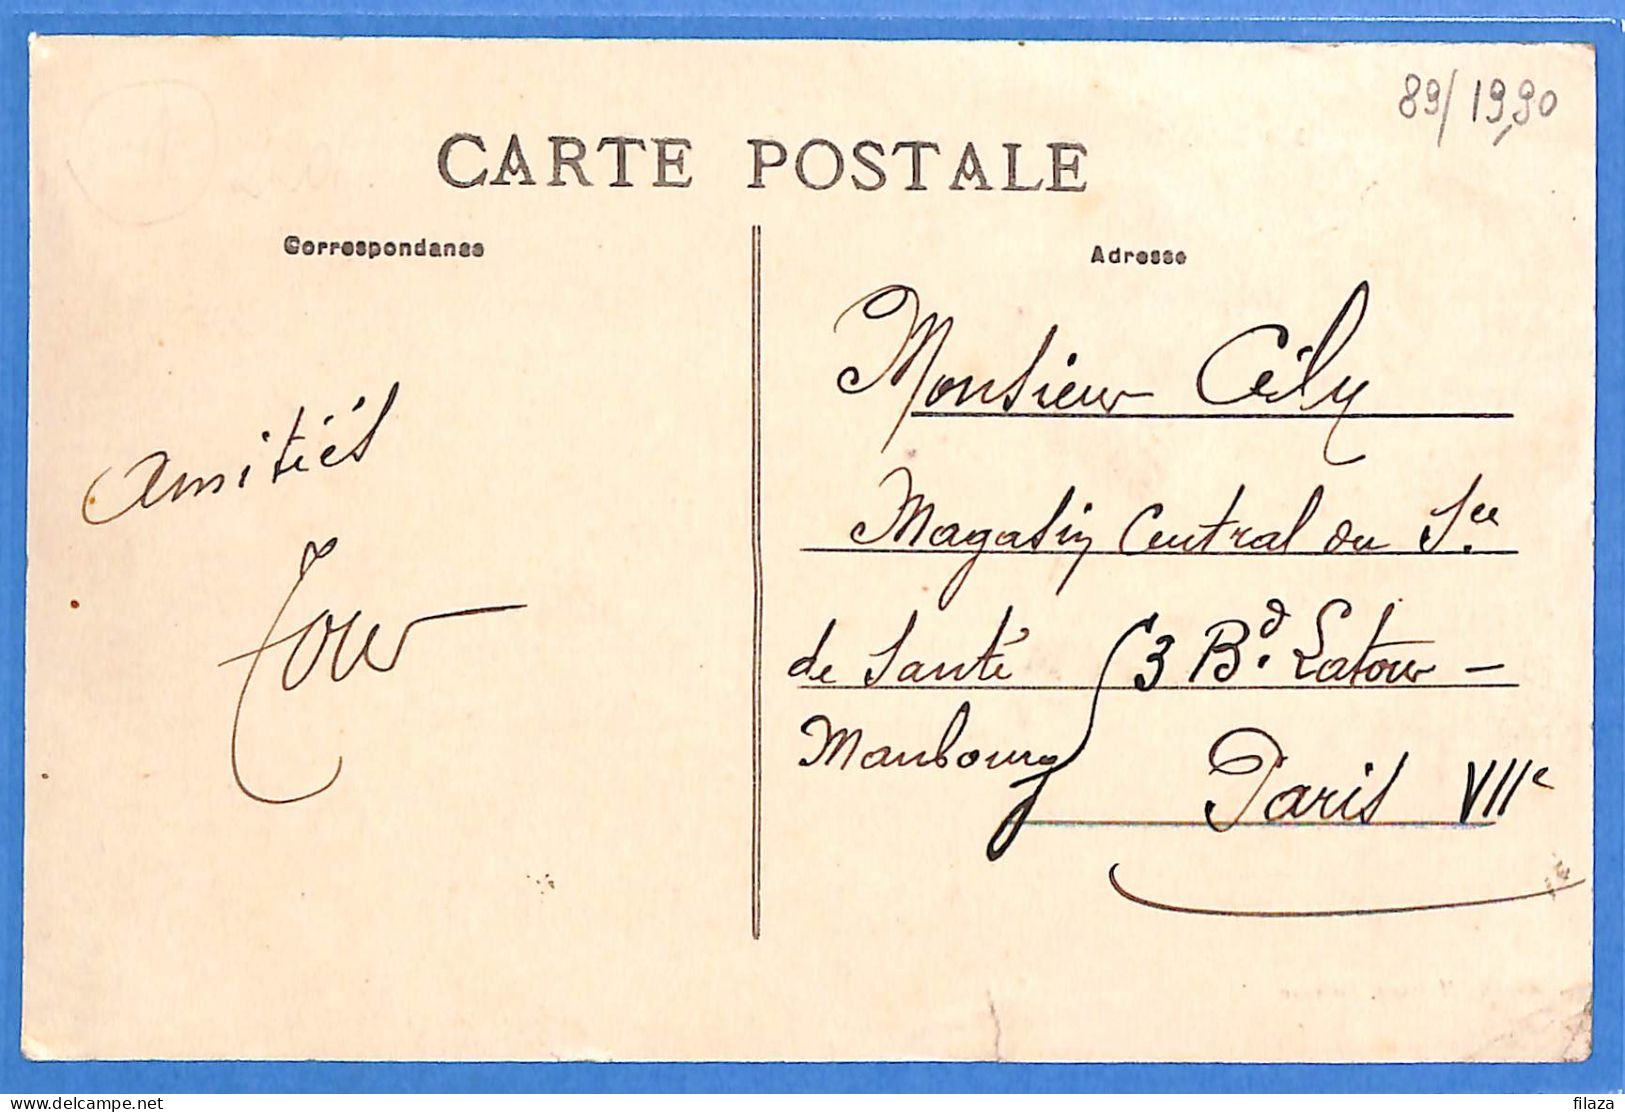 89/19,90
CARTE POSTALE
Correspondance
Adresse
Amitiés
Monsieur
Magasin Central du Sce
de Santé 3 Bd. Latour-
Maubourg
Paris VIIe
filaza